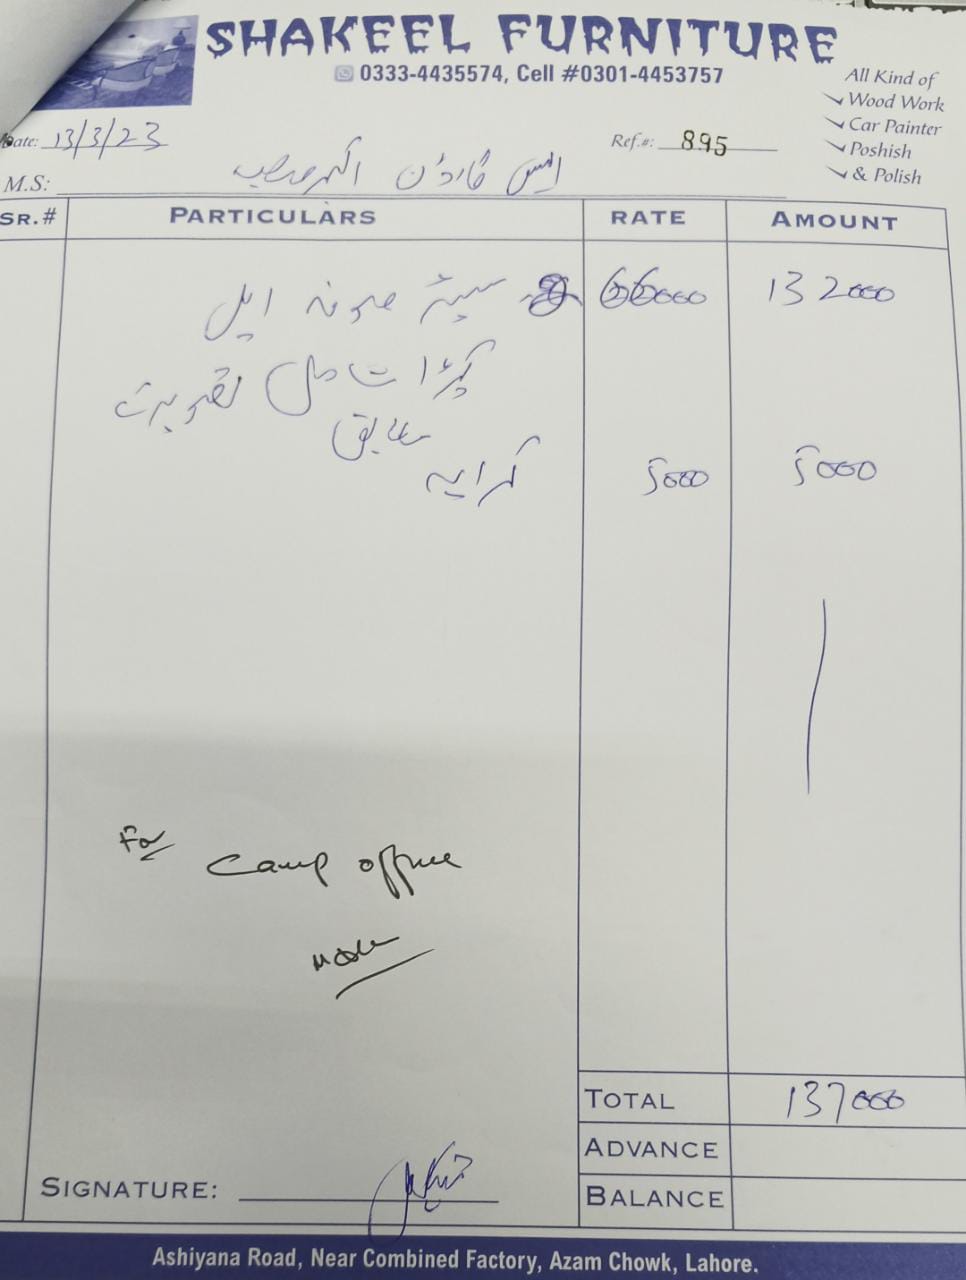 SHAKEEL FURNITURE
0333-4435574, Cell #0301-4453757
All Kind of
Wood Work
Car Painter
Poshish
& Polish
Date: 13/3/23
Ref.#: 895
M.S: ایس گارڈن
SR.# PARTICULARS RATE AMOUNT
سیٹر صوفہ ایل 66000 132000
کپڑا
مطابق
کرایہ 5000 5000
For Camp office
TOTAL 137000
ADVANCE
BALANCE
SIGNATURE:
Ashiyana Road, Near Combined Factory, Azam Chowk, Lahore.